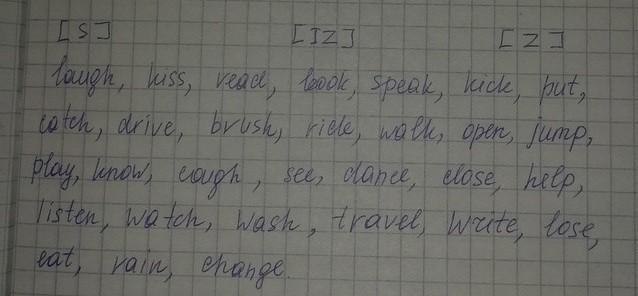 [S] [IZ] [Z]
laugh, kiss, read, look, speak, kick, put,
catch, drive, brush, ride, walk, open, jump,
play, know, cough, see, dance, close, help,
listen, watch, wash, travel, write, lose,
eat, rain, change.